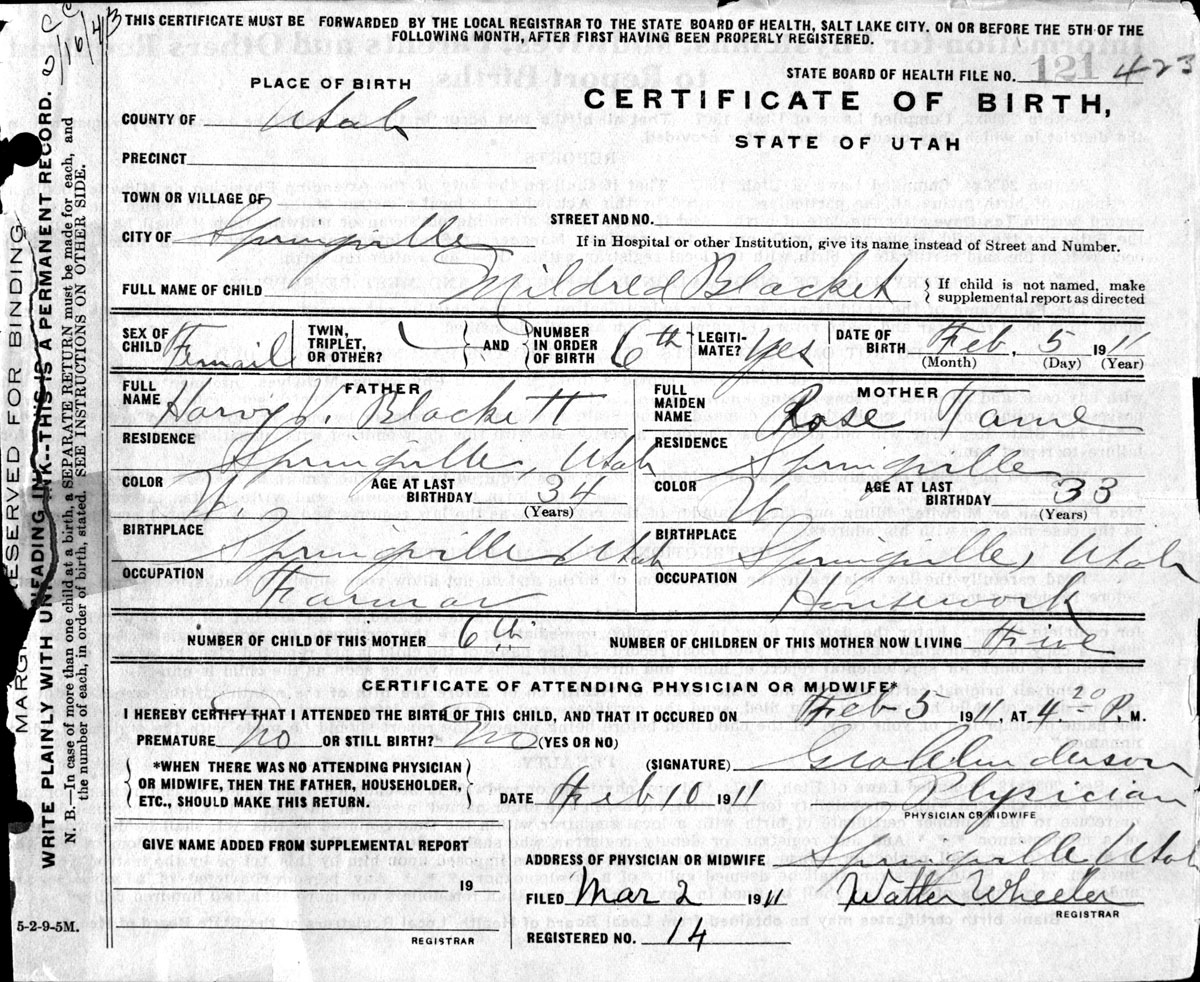 THIS CERTIFICATE MUST BE FORWARDED BY THE LOCAL REGISTRAR TO THE STATE BOARD OF HEALTH, SALT LAKE CITY, ON OR BEFORE THE 5TH OF THE
FOLLOWING MONTH, AFTER FIRST HAVING BEEN PROPERLY REGISTERED.
PLACE OF BIRTH
STATE BOARD OF HEALTH FILE NO. 121 423
CERTIFICATE OF BIRTH,
STATE OF UTAH
COUNTY OF Utah
PRECINCT
TOWN OR VILLAGE OF
STREET AND NO.
CITY OF Springville
If in Hospital or other Institution, give its name instead of Street and Number.
FULL NAME OF CHILD Mildred Blackett
If child is not named, make
supplemental report as directed
SEX OF CHILD Femail
TWIN, TRIPLET, OR OTHER?
AND NUMBER IN ORDER OF BIRTH 6th
LEGITI-MATE? Yes
DATE OF BIRTH Feb, 5 1911
(Month) (Day) (Year)
FATHER
FULL NAME Blackett
RESIDENCE Springville, Utah
COLOR W AGE AT LAST BIRTHDAY 34
(Years)
BIRTHPLACE Springville Utah
OCCUPATION Farmer
MOTHER
FULL MAIDEN NAME Rose Tame
RESIDENCE Springville
COLOR W AGE AT LAST BIRTHDAY 33
(Years)
BIRTHPLACE Springville, Utah
OCCUPATION Housework
NUMBER OF CHILD OF THIS MOTHER 6th NUMBER OF CHILDREN OF THIS MOTHER NOW LIVING Five
CERTIFICATE OF ATTENDING PHYSICIAN OR MIDWIFE*
I HEREBY CERTIFY THAT I ATTENDED THE BIRTH OF THIS CHILD, AND THAT IT OCCURED ON Feb 5 1911, AT 4 P. M.
PREMATURE No OR STILL BIRTH? No (YES OR NO)
*WHEN THERE WAS NO ATTENDING PHYSICIAN
OR MIDWIFE, THEN THE FATHER, HOUSEHOLDER,
ETC., SHOULD MAKE THIS RETURN.
(SIGNATURE) Geo Anderson
DATE 1911
Physician
PHYSICIAN OR MIDWIFE
GIVE NAME ADDED FROM SUPPLEMENTAL REPORT
19
REGISTRAR
ADDRESS OF PHYSICIAN OR MIDWIFE Springville Utah
FILED Mar 2 1911 Walter Wheeler
REGISTRAR
REGISTERED NO. 14
5-2-9-5M.
RESERVED FOR BINDING
WRITE PLAINLY WITH UNFADING INK--THIS IS A PERMANENT RECORD.
N. B.—In case of more than one child at a birth, a SEPARATE RETURN must be made for each, and
the number of each, in order of birth, stated. SEE INSTRUCTIONS ON OTHER SIDE.